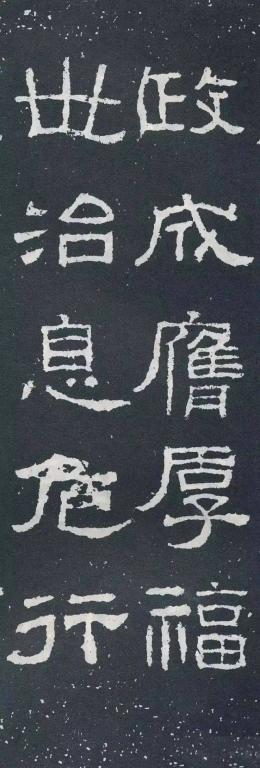 政成膺厚福
世治息危行